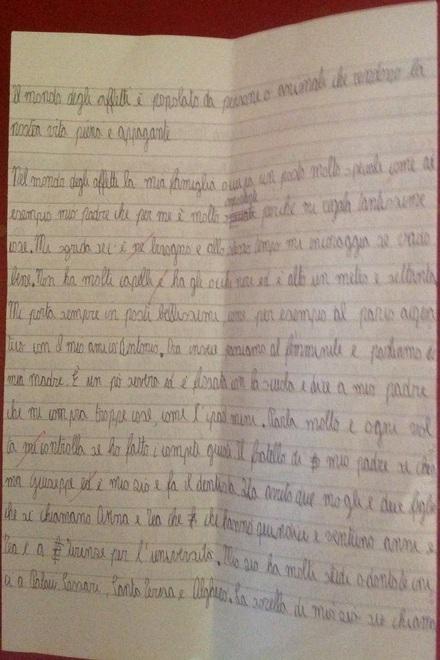 Il mondo degli affetti è popolato da persone o animali che rendono la
nostra vita piena e appagante
Nel mondo degli affetti la mia famiglia occupa un posto molto speciale come ad
esempio mio padre che per me è molto speciale perché mi regala tantissime
cose. Mi sgrida se c'è ne bisogno e allo stesso tempo mi incoraggia se vado
bene. Non ha molti capelli e ha gli occhi neri ed è alto un metro e settanta
Mi porta sempre in posti bellissimi come per esempio al parco acqua
tico con il mio amico Antonio. Ora invece passiamo al femminile e parliamo di
mia madre. È un pò severa ed è fissata con la scuola e dice a mio padre
che mi compra troppe cose, come l'ipad mini. Parla molto e ogni vol
ta mi controlla se ho fatto i compiti giusti. Il fratello di mio padre si chia
ma Giuseppe ed è mio zio e fa il dentista. Ha avuto due mogli e due figlie
che si chiamano Anna e Lea che hanno quindici e ventuno anni e
Lea è a Firenze per l'università. Mio zio ha molti studi odontoiatrici
a Palau, Sassari, Santa Teresa e Alghero. La sorella di mio zio si chiama